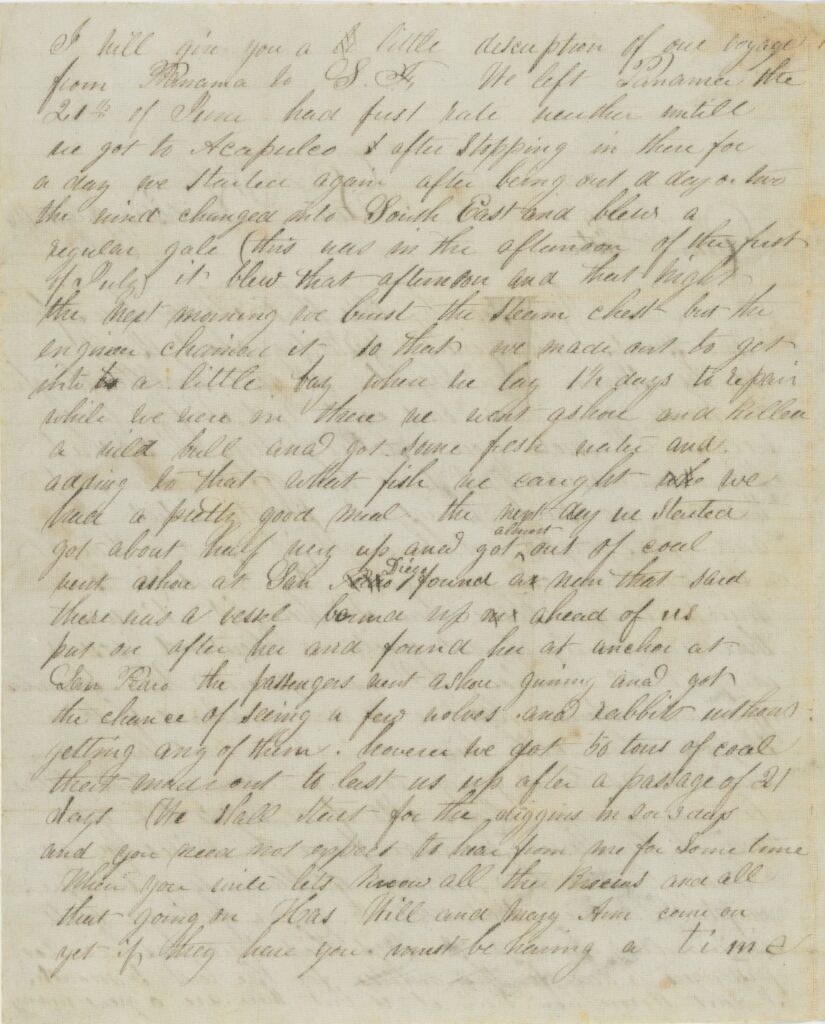 I will give you a little description of our voyage
from Panama to S. F. We left Panama the
21st of June had first rate weather untill
we got to Acapulco & after stopping in there for
a day we started again after being out a day or two
the wind changed into South East and blew a
regular gale (this was in the afternoon of the first
of July) it blew that afternoon and that night
the next morning we burst the steam chest but the
engineer chained it so that we made out to get
into a little bay where we lay 1½ days to repair
while we were in there we went ashore and killed
a wild bull and got some fresh water and
adding to that what fish we caught we
had a pretty good meal. the next day we started
got about half way up and got almost out of coal
went ashore at San Diego & found a man that said
there was a vessel bound up ahead of us
put on after her and found her at anchor at
San Pedro the passengers went ashore gunning and got
the chance of seeing a few wolves and rabbits without
getting any of them. however we got 50 tons of coal
that made out to last us up after a passage of 21
days We shall start for the diggins in 2 or 3 days
and you need not expect to hear from me for some time
When you write lets know all the news and all
that going on Has Will and Mary Ann come on
yet if they have you must be having a time